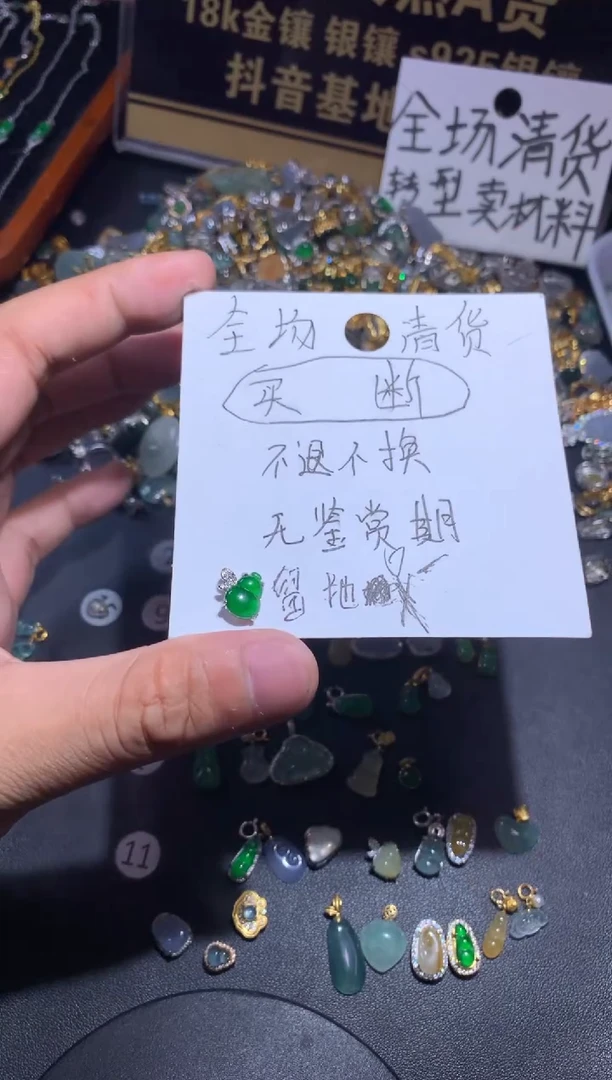 A货
18k金镶 银镶 s925银镶
抖音基地
全场清货
转型卖材料
全场 清货
买 断
不退不换
无鉴赏期
11